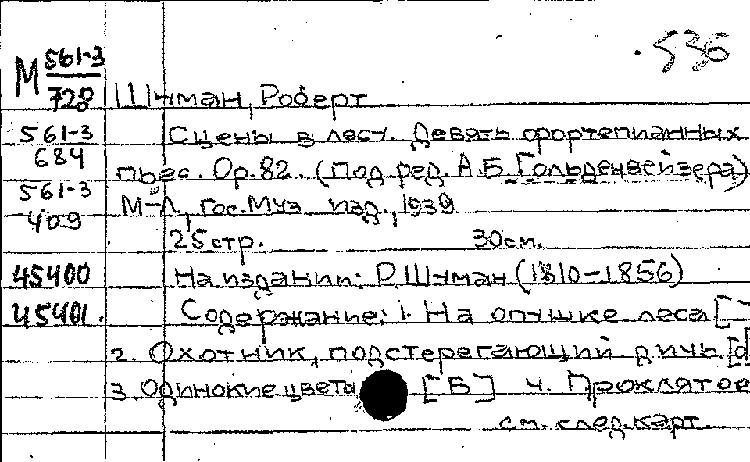 536
М 561-3/728 Шуман, Роберт
561-3/684 Сцены в лесу. Девять фортепианных
пьес. Ор.82. (Под ред. А.Б.Гольденвейзера)
561-3/409 М-Л, Гос.Муз. изд., 1939
25стр. 30см.
45400 На издании: Р.Шуман (1810-1856)
45401. Содержание: 1. На опушке леса [
2. Охотник, подстерегающий дичь. [d
3. Одинокие цвета [В] 4. Проклятое
см. след.карт.